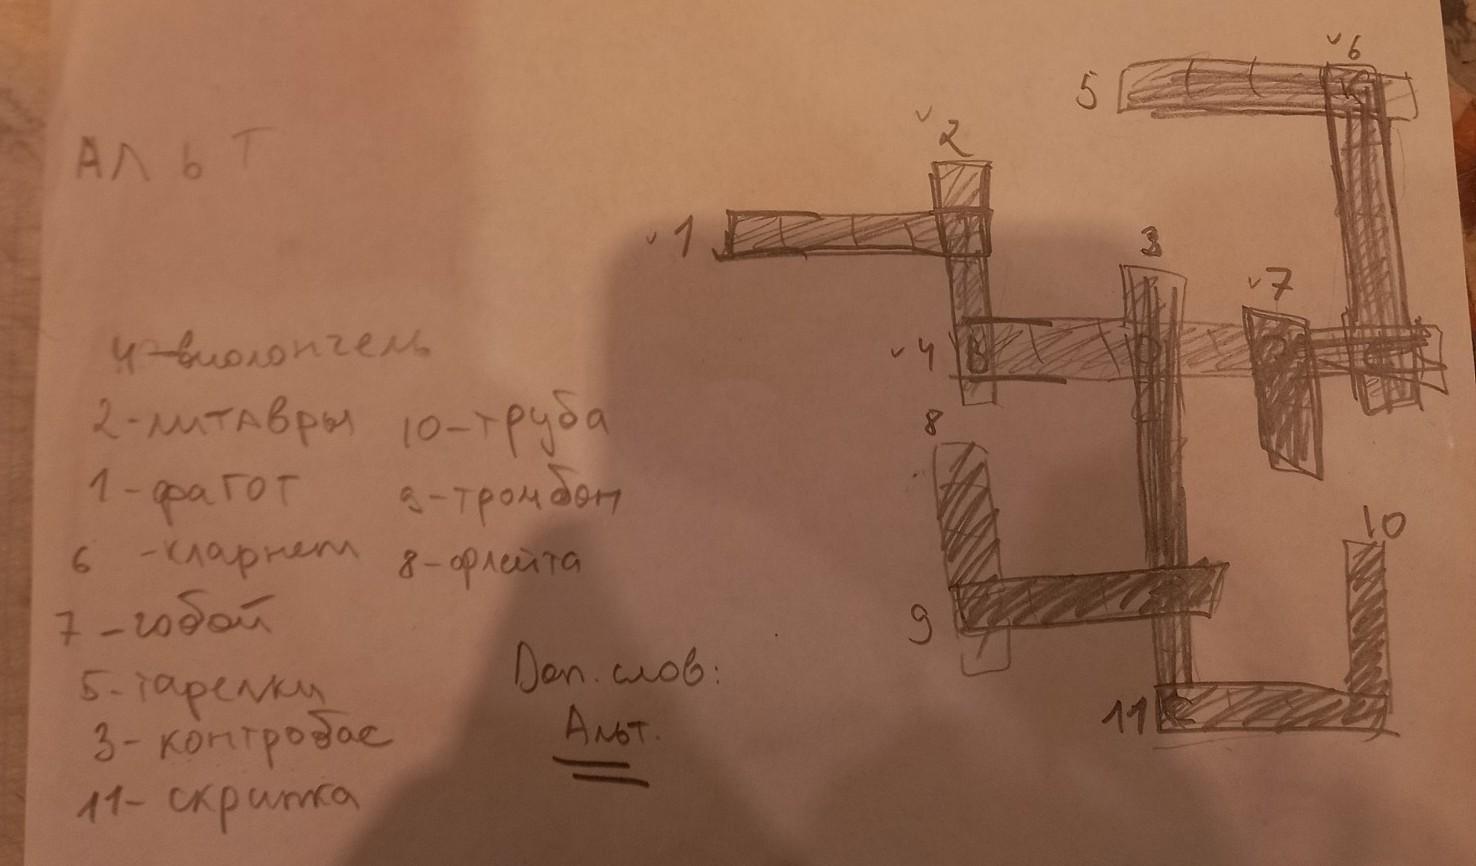 АЛЬТ
4-виолончель
2-литавры
10-труба
1-фагот
9-тромбон
6 -кларнет
8-флейта
7-гобой
5-тарелки
3-контробас
11- скрипка
Доп. слов:
Альт.
6
5
2
1
3
7
4
В
8
10
9
11
С